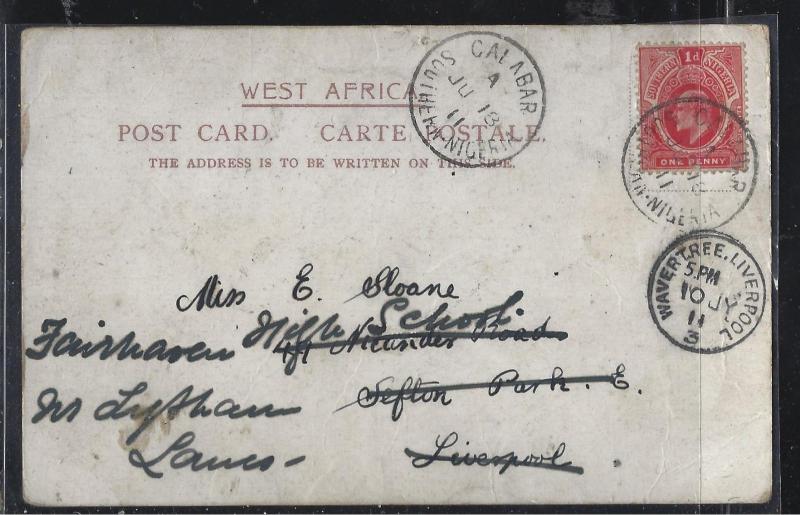 WEST AFRICA
POST CARD. CARTE POSTALE.
THE ADDRESS IS TO BE WRITTEN ON THIS SIDE.
CALABAR
A
JU 18
11
SOUTHERN-NIGERIA
1d
SOUTHERN NIGERIA
ONE PENNY
11
NIGERIA
WAVERTREE. LIVERPOOL
5.PM
10 JY
11
3
Miss E. Sloane
High School
Road
Fairhaven
Sefton Park. E.
nr Lytham
Liverpool
Lancs-